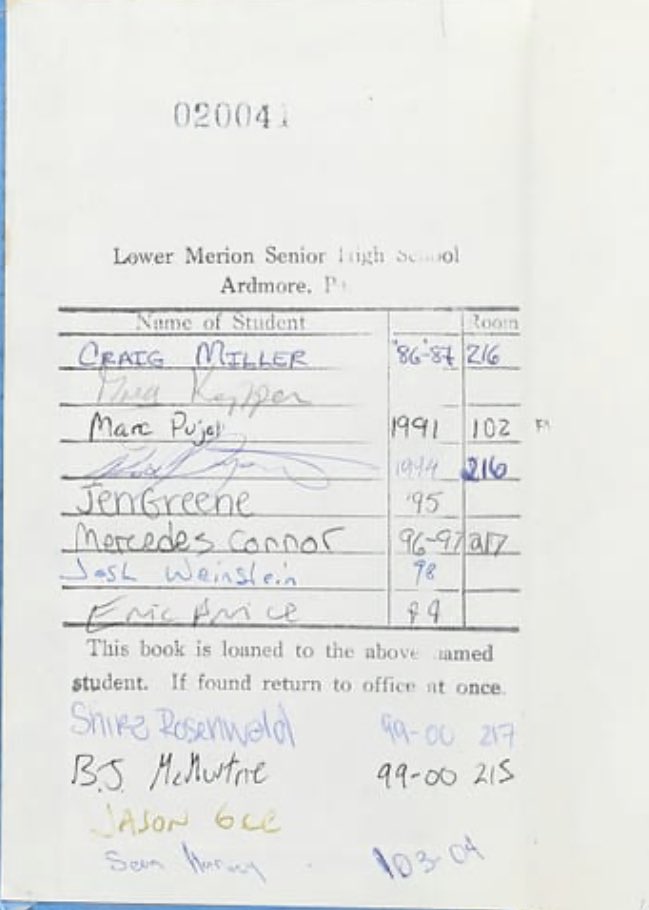 020041
Lower Merion Senior High School
Ardmore, Pa.
Name of Student Room
CRAIG MILLER '86-'87 216
Marc Pujol 1991 102
1994 216
Jen Greene '95
Mercedes Connor 96-97 217
Josh Weinstein 98
Eric Price 99
This book is loaned to the above named
student. If found return to office at once.
Rosenwald 99-00 217
B.J. 99-00 215
JASON
Sean 03-04